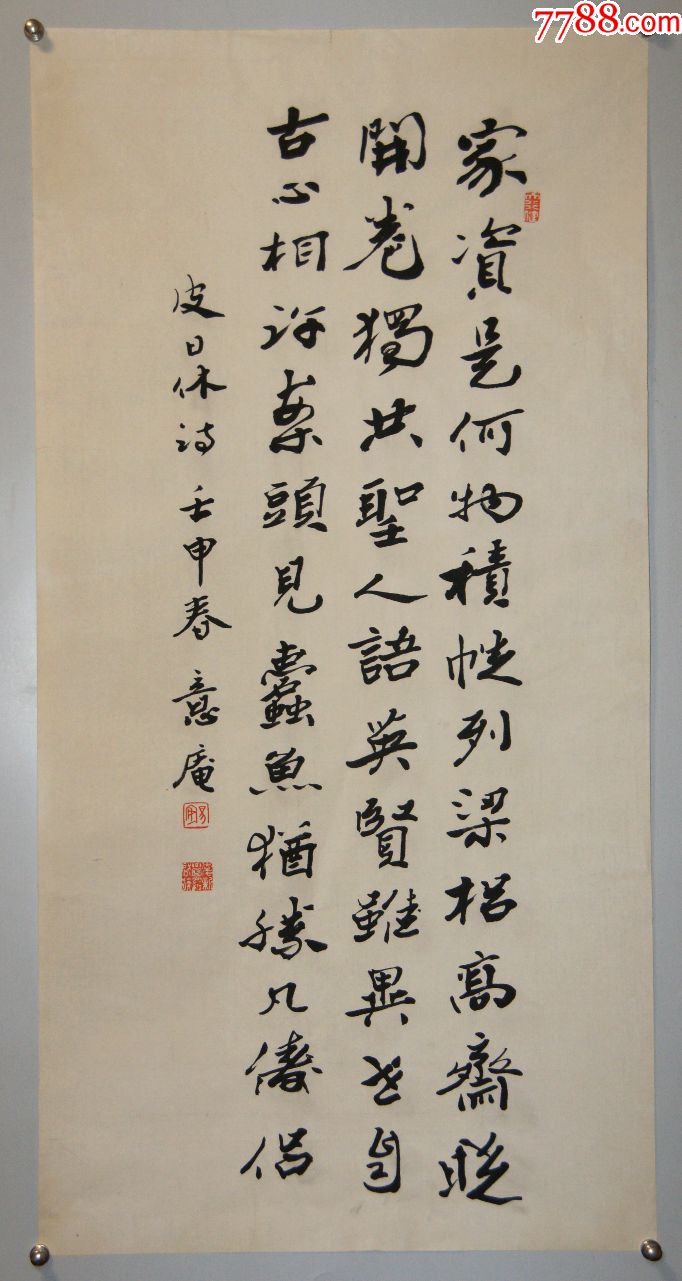 7788.com
家資是何物積帙列梁梠高齋曉
開卷獨共聖人語英賢雖異世自
古心相許案頭見蠹魚猶勝凡儔侶
皮日休詩 壬申春 意庵